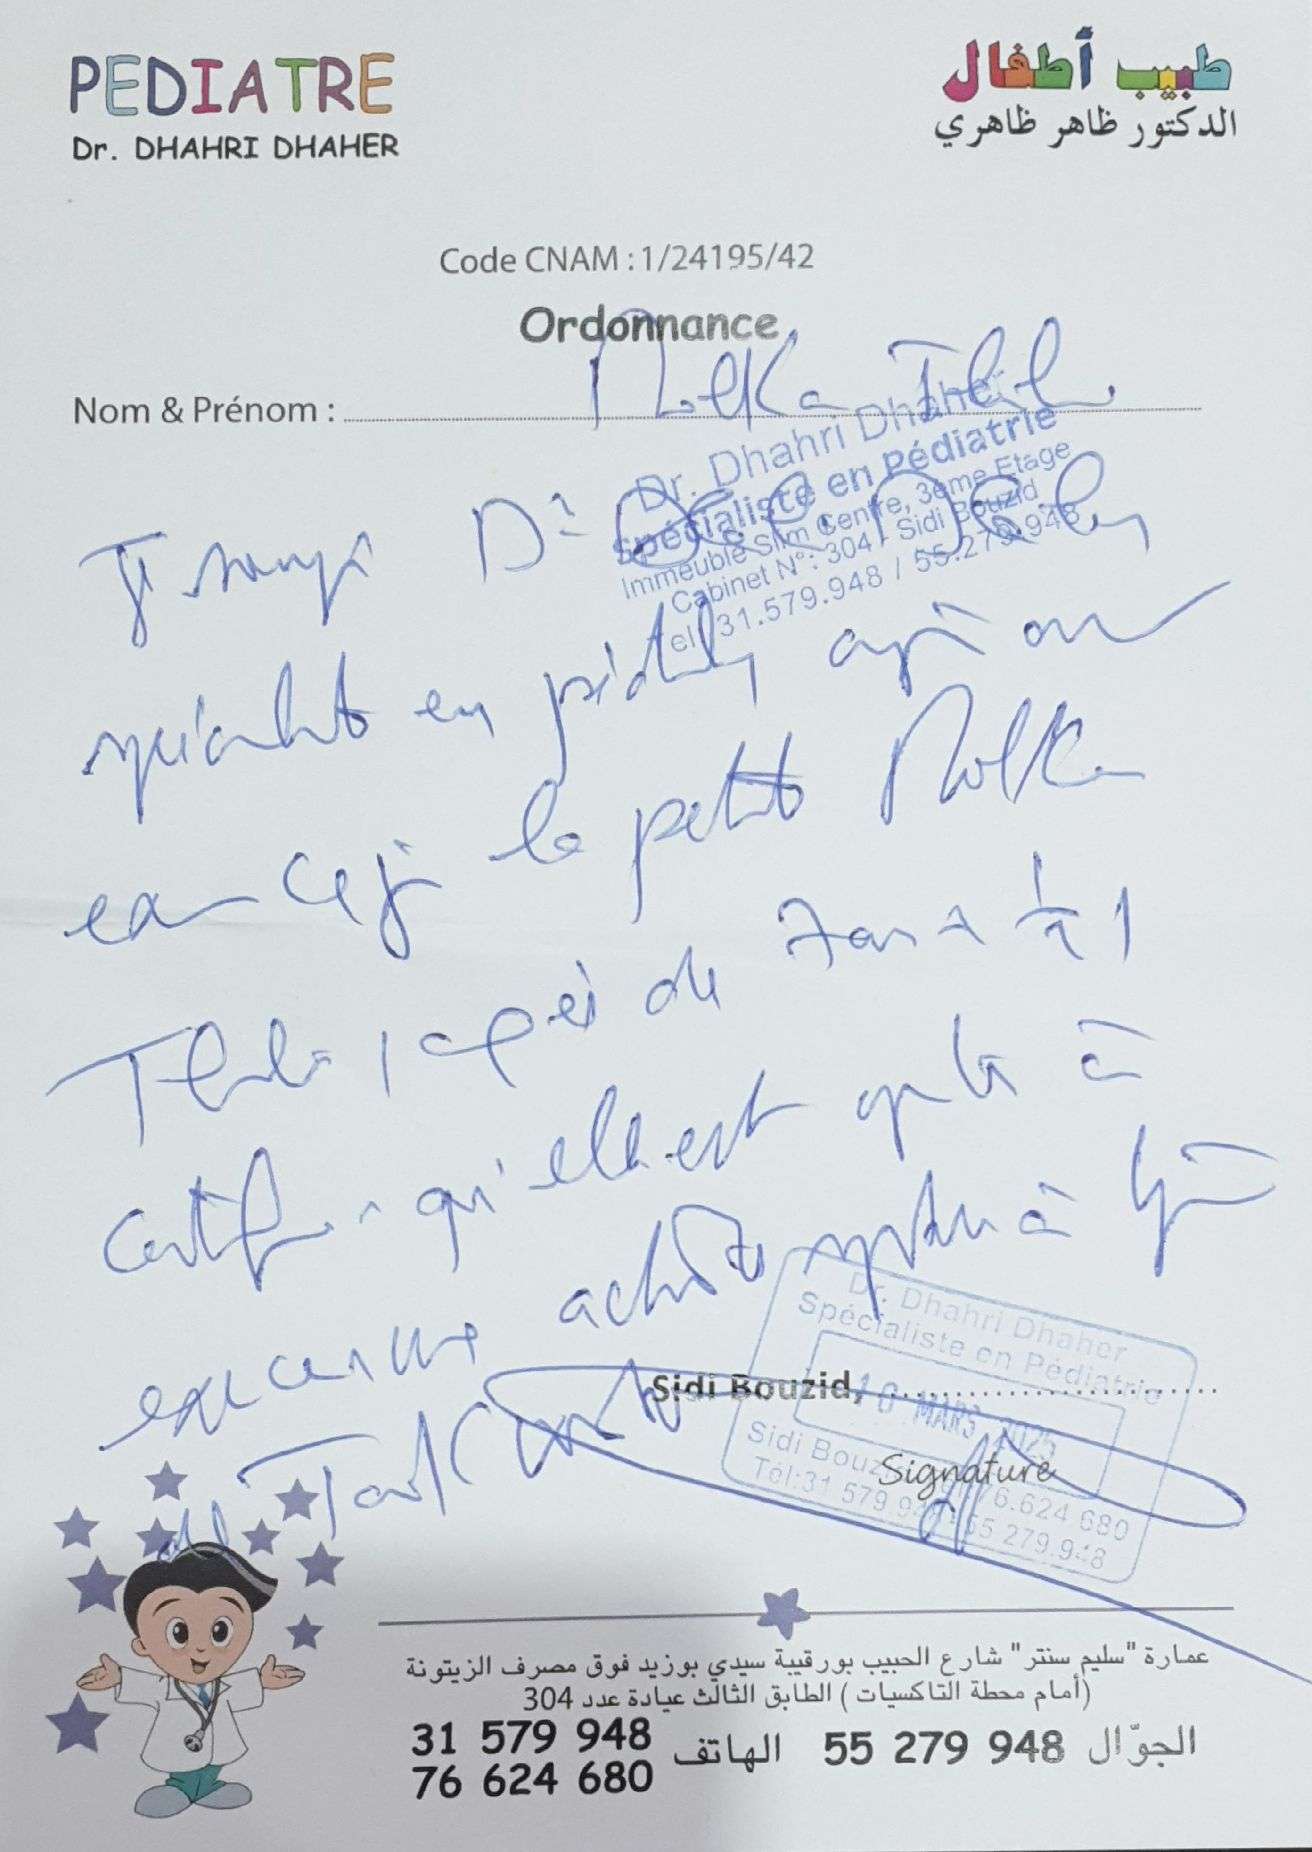 PEDIATRE
Dr. DHAHRI DHAHER
طبيب أطفال
الدكتور ظاهر ظاهري
Code CNAM : 1/24195/42
Ordonnance
Nom & Prénom : Molka
Dr. Dhahri Dhaher
Spécialiste en Pédiatrie
Immeuble Slim Centre, 3ème Etage
Cabinet N°: 304 - Sidi Bouzid
Tel : 31.579.948 / 55.279.948
Je soussigné Dr
spécialiste en pédiatrie après
examen ce jour la petite Molka
agée de 7 ans et 1/2
certifie qu'elle est apte à
exercer une activité sportive à
Sidi Bouzid,
Dr. Dhahri Dhaher
Spécialiste en Pédiatrie
MARS 2025
Sidi Bouzid 76.624 680
Tél:31 579 948 - 55 279.948
Signature
عمارة "سليم سنتر" شارع الحبيب بورقيبة سيدي بوزيد فوق مصرف الزيتونة
(أمام محطة التاكسيات) الطابق الثالث عيادة عدد 304
الجوّال 55 279 948 الهاتف 31 579 948
76 624 680